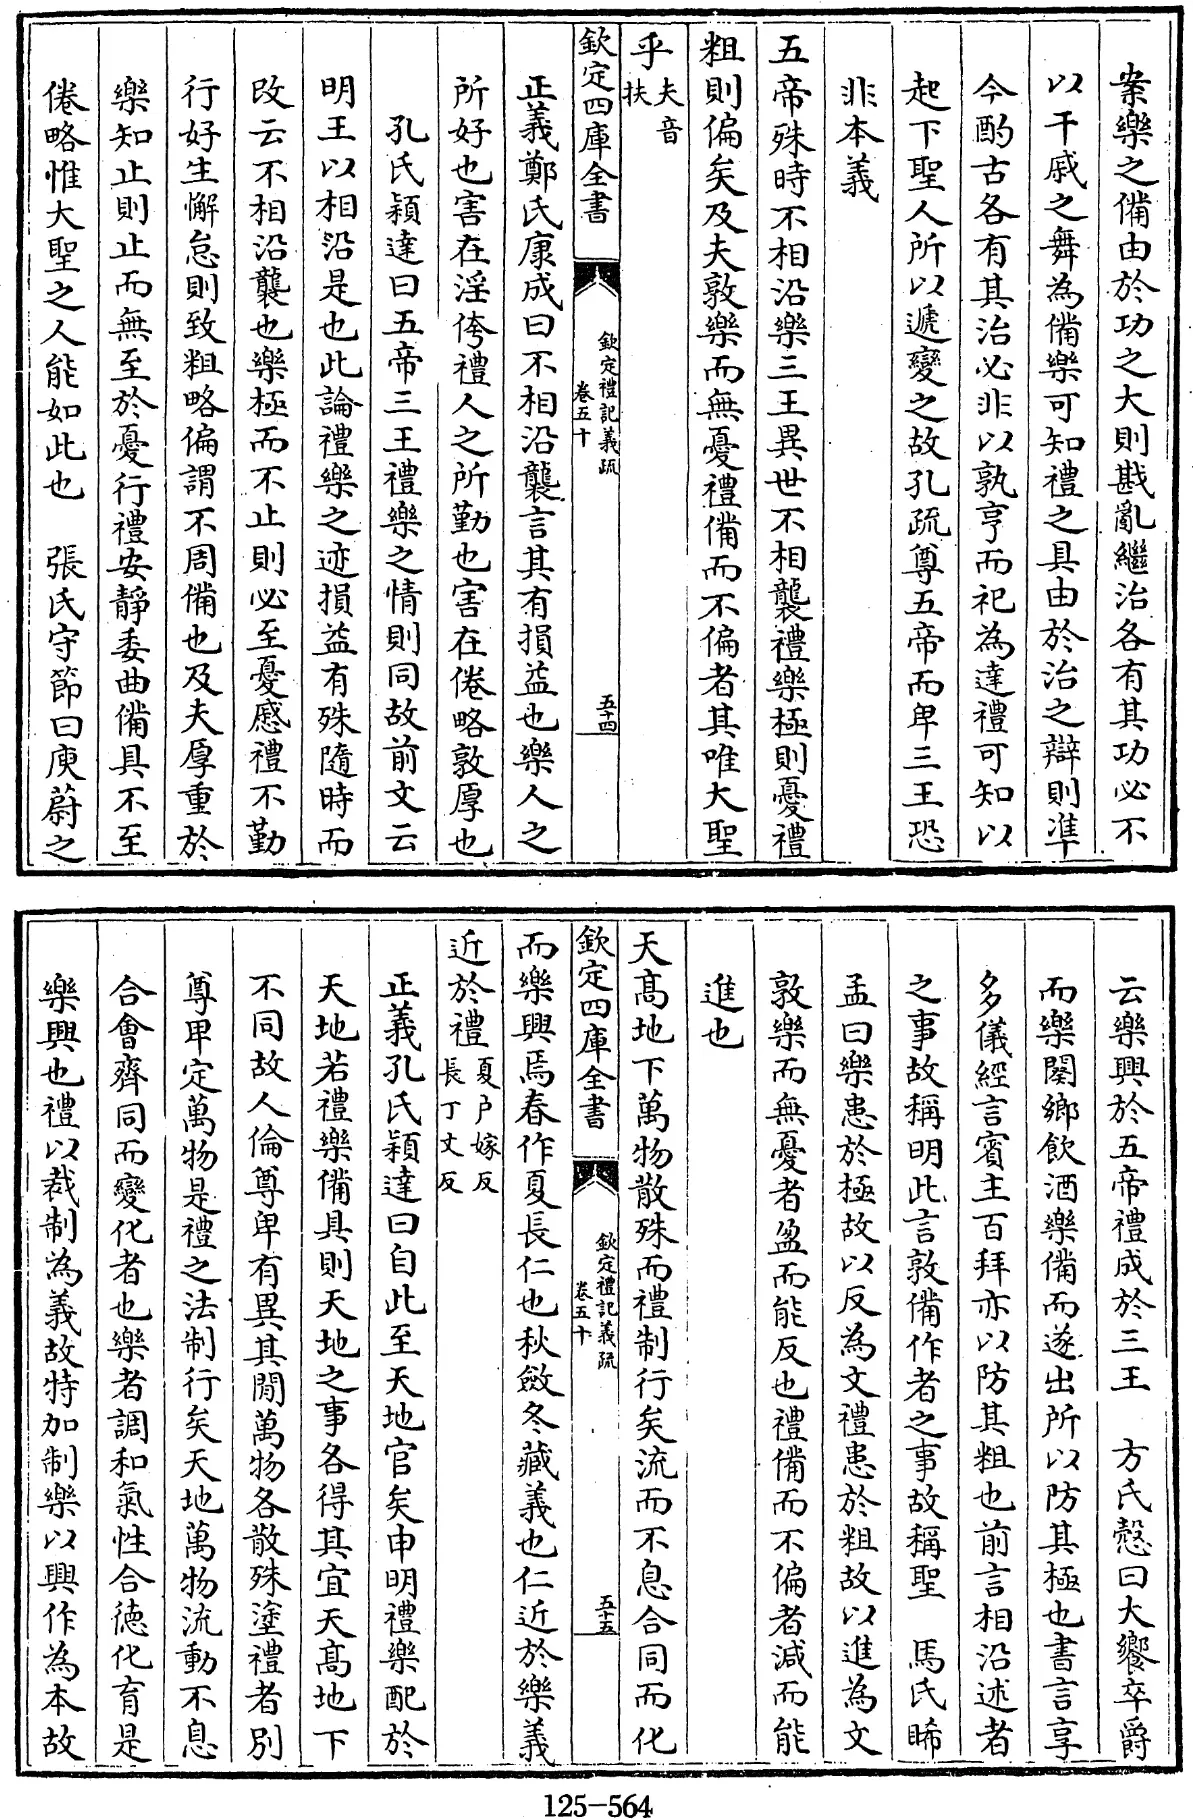 案樂之備由於功之大則戡亂繼治各有其功必不
以干戚之舞為備樂可知禮之具由於治之辯則準
今酌古各有其治必非以孰亨而祀為達禮可知以
起下聖人所以遞變之故孔疏尊五帝而卑三王恐
非本義
五帝殊時不相沿樂三王異世不相襲禮樂極則憂禮
粗則偏矣及夫敦樂而無憂禮備而不偏者其唯大聖
乎夫音扶
欽定四庫全書
欽定禮記義疏
卷五十
五十四
正義鄭氏康成曰不相沿襲言其有損益也樂人之
所好也害在淫侉禮人之所勤也害在倦略敦厚也
孔氏穎達曰五帝三王禮樂之情則同故前文云
明王以相沿是也此論禮樂之迹損益有殊隨時而
改云不相沿襲也樂極而不止則必至憂慼禮不勤
行好生懈怠則致粗略偏謂不周備也及夫厚重於
樂知止則止而無至於憂行禮安靜委曲備具不至
倦略惟大聖之人能如此也 張氏守節曰庾蔚之
云樂興於五帝禮成於三王 方氏慤曰大饗卒爵
而樂闋鄉飲酒樂備而遂出所以防其極也書言享
多儀經言賓主百拜亦以防其粗也前言相沿述者
之事故稱明此言敦備作者之事故稱聖 馬氏晞
孟曰樂患於極故以反為文禮患於粗故以進為文
敦樂而無憂者盈而能反也禮備而不偏者減而能
進也
天高地下萬物散殊而禮制行矣流而不息合同而化
欽定四庫全書
欽定禮記義疏
卷五十
五十五
而樂興焉春作夏長仁也秋斂冬藏義也仁近於樂義
近於禮夏户嫁反長丁丈反
正義孔氏穎達曰自此至天地官矣申明禮樂配於
天地若禮樂備具則天地之事各得其宜天高地下
不同故人倫尊卑有異其間萬物各散殊塗禮者別
尊卑定萬物是禮之法制行矣天地萬物流動不息
合會齊同而變化者也樂者調和氣性合德化育是
樂興也禮以裁制為義故特加制樂以興作為本故
125-564